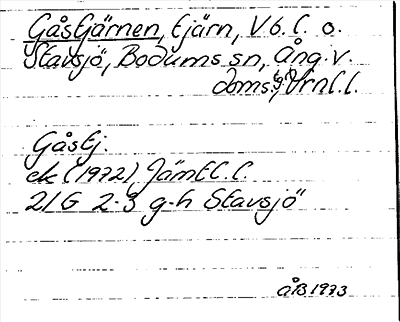 Gåstjärnen, tjärn, V o. l. o.
Stavsjö, Bodums sn, Ång. v.
doms:s, Vrnl. l.
Gåstj.
ek (1972) Jämtl. l.
21G 2-3 g-h Stavsjö
ÅB 1973